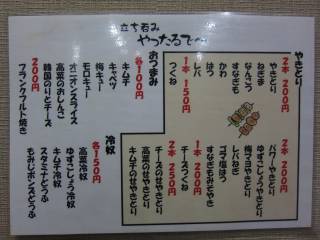 立ち呑み
やったるで～
やきとり
2本 200円
やきとり
ねぎま
なんこつ
すなぎも
かわ
はつ
レバ
つくね
1本 150円
パワーやきとり
ゆずこしょうやきとり
梅マヨやきとり
レバねぎ
ゴマ塩はつ
すなぎもみそやき
1本 200円
チーズつくね
2本 250円
チーズのせやきとり
高菜のせやきとり
キムチのせやきとり
おつまみ
各100円
キムチ
キャベツ
梅キュー
モロキュー
オニオンスライス
高菜のおしんこ
韓国のりとチーズ
200円
フランクフルト焼き
冷奴
各150円
高菜冷奴
ゆずこしょう冷奴
キムチ冷奴
スタミナどうふ
もみじポンズどうふ